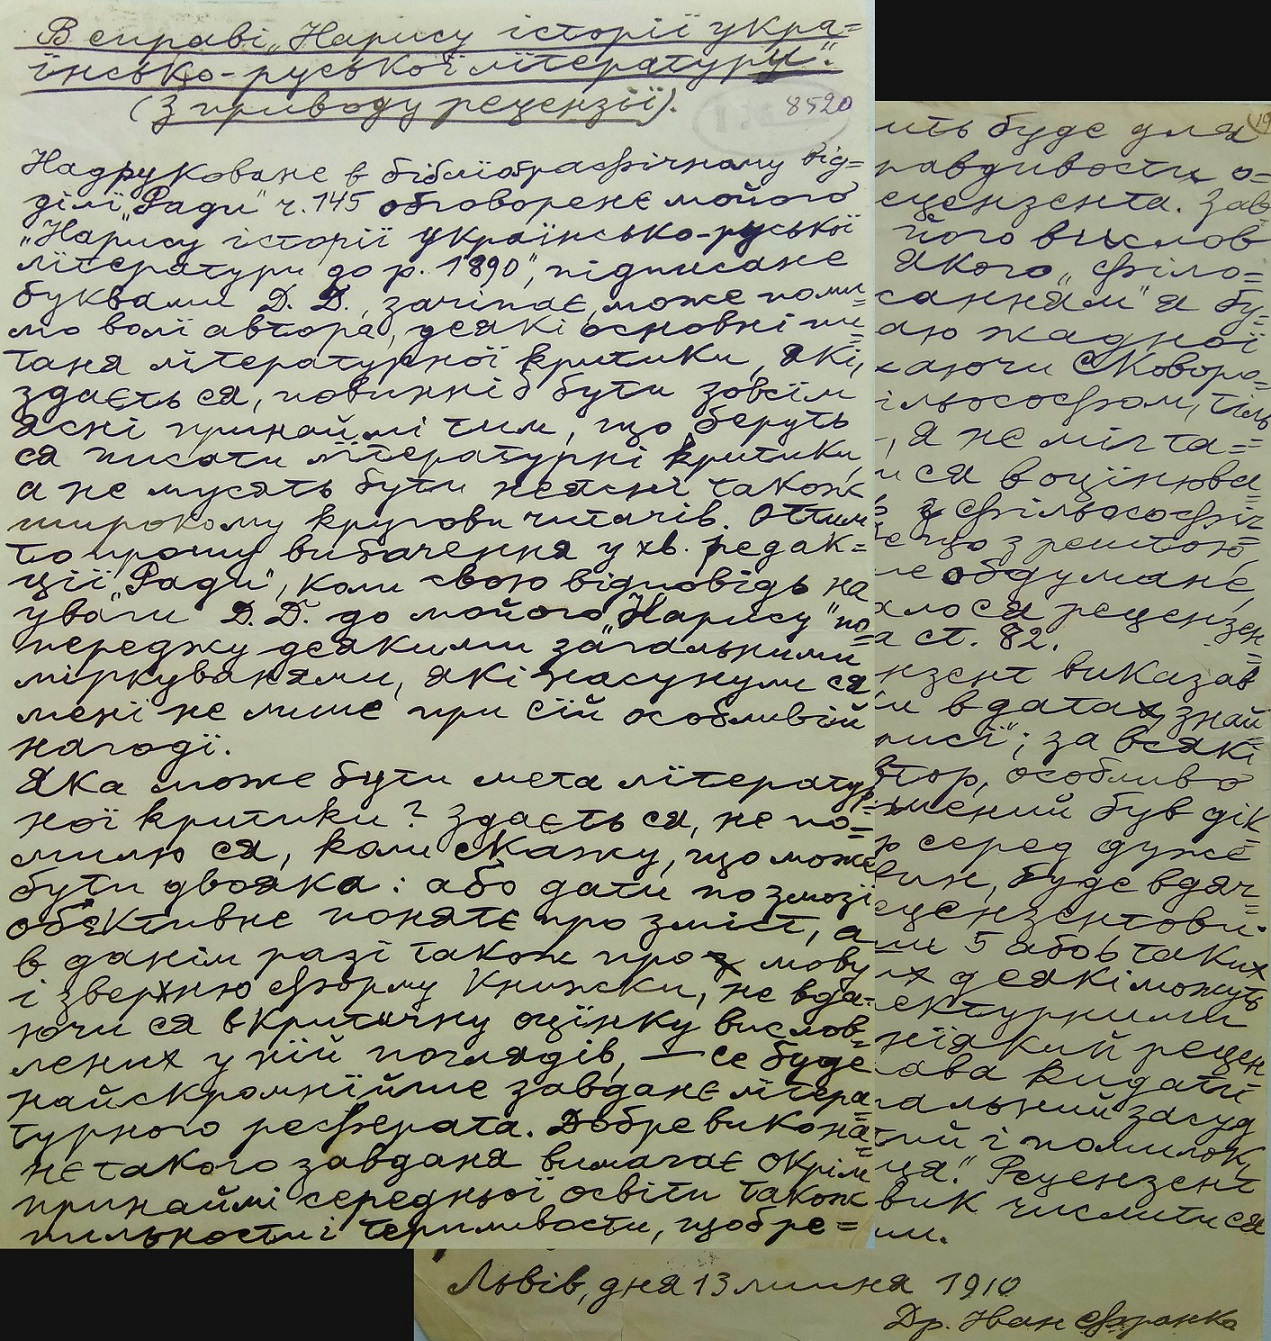 В справі „Нарису історії укра=
їнсько-руської літератури".
(З приводу рецензії).
8520
Надруковане в бібліографічному від=
ділі „Ради" ч. 145 обговоренє мойого
„Нарису історії українсько-руської
літератури до р. 1890", підписане
буквами Д. Д., зачіпає, може поми=
мо волі автора, деякі основні пи=
таня літературної критики, які,
здаєть ся, повинні б бути зовсїм
ясні принаймі тим, що беруть
ся писати лїтературні критики,
а не мусять бути неясні також
широкому кругови читачів. Оттим
то прошу вибачення у хв. редак=
ції „Ради", коли свою відповідь на
уваги Д. Д. до мойого „Нарису" по=
переджу деякими загальними
міркуванями, які насунули ся
мені не лише при сїй особливій
нагоді.
Яка може бути мета лїтератур=
ної критики? Здаєть ся, не по=
милю ся, коли скажу, що може
бути двояка: або дати по змозі
обєктивне понятє про зміст, а
в данім разі також про мову
і зверхню форму книжки, не вда=
ючи ся в критичну оцїнку вислов=
лених у нїй поглядів, — се буде
найскромнїйше завданє лїтера=
турного реферата. Добре викона=
нє такого завданя вимагає окрім
принаймі середньої освіти також
пильности і терпливости, що бре=
ить буде для
равдивости о=
ецензента. Зав
його вислов
якого „філо=
санням" я бу=
аю жадної
каючи Сковоро=
ільософом, тіль
, я не міг та=
и ся в оцїнюва
з фільософіч
що з рештою,
не обдумане,
алося рецензен=
а ст. 82.
нзент виказав
и в датах, знай
писї"; за всякі
втор, особливо
ьмений був дїк
о серед дуже
вин, буде вдяч=
ецензентови.
ми 5 або 6 таких
их деякі можуть
ектурними
нїякий рецен
ава кидати
альний засуд
тий і помилок,
ця". Рецензент
вик числитися
ми.
Львів, дня 13 липня 1910
Др. Іван Франко